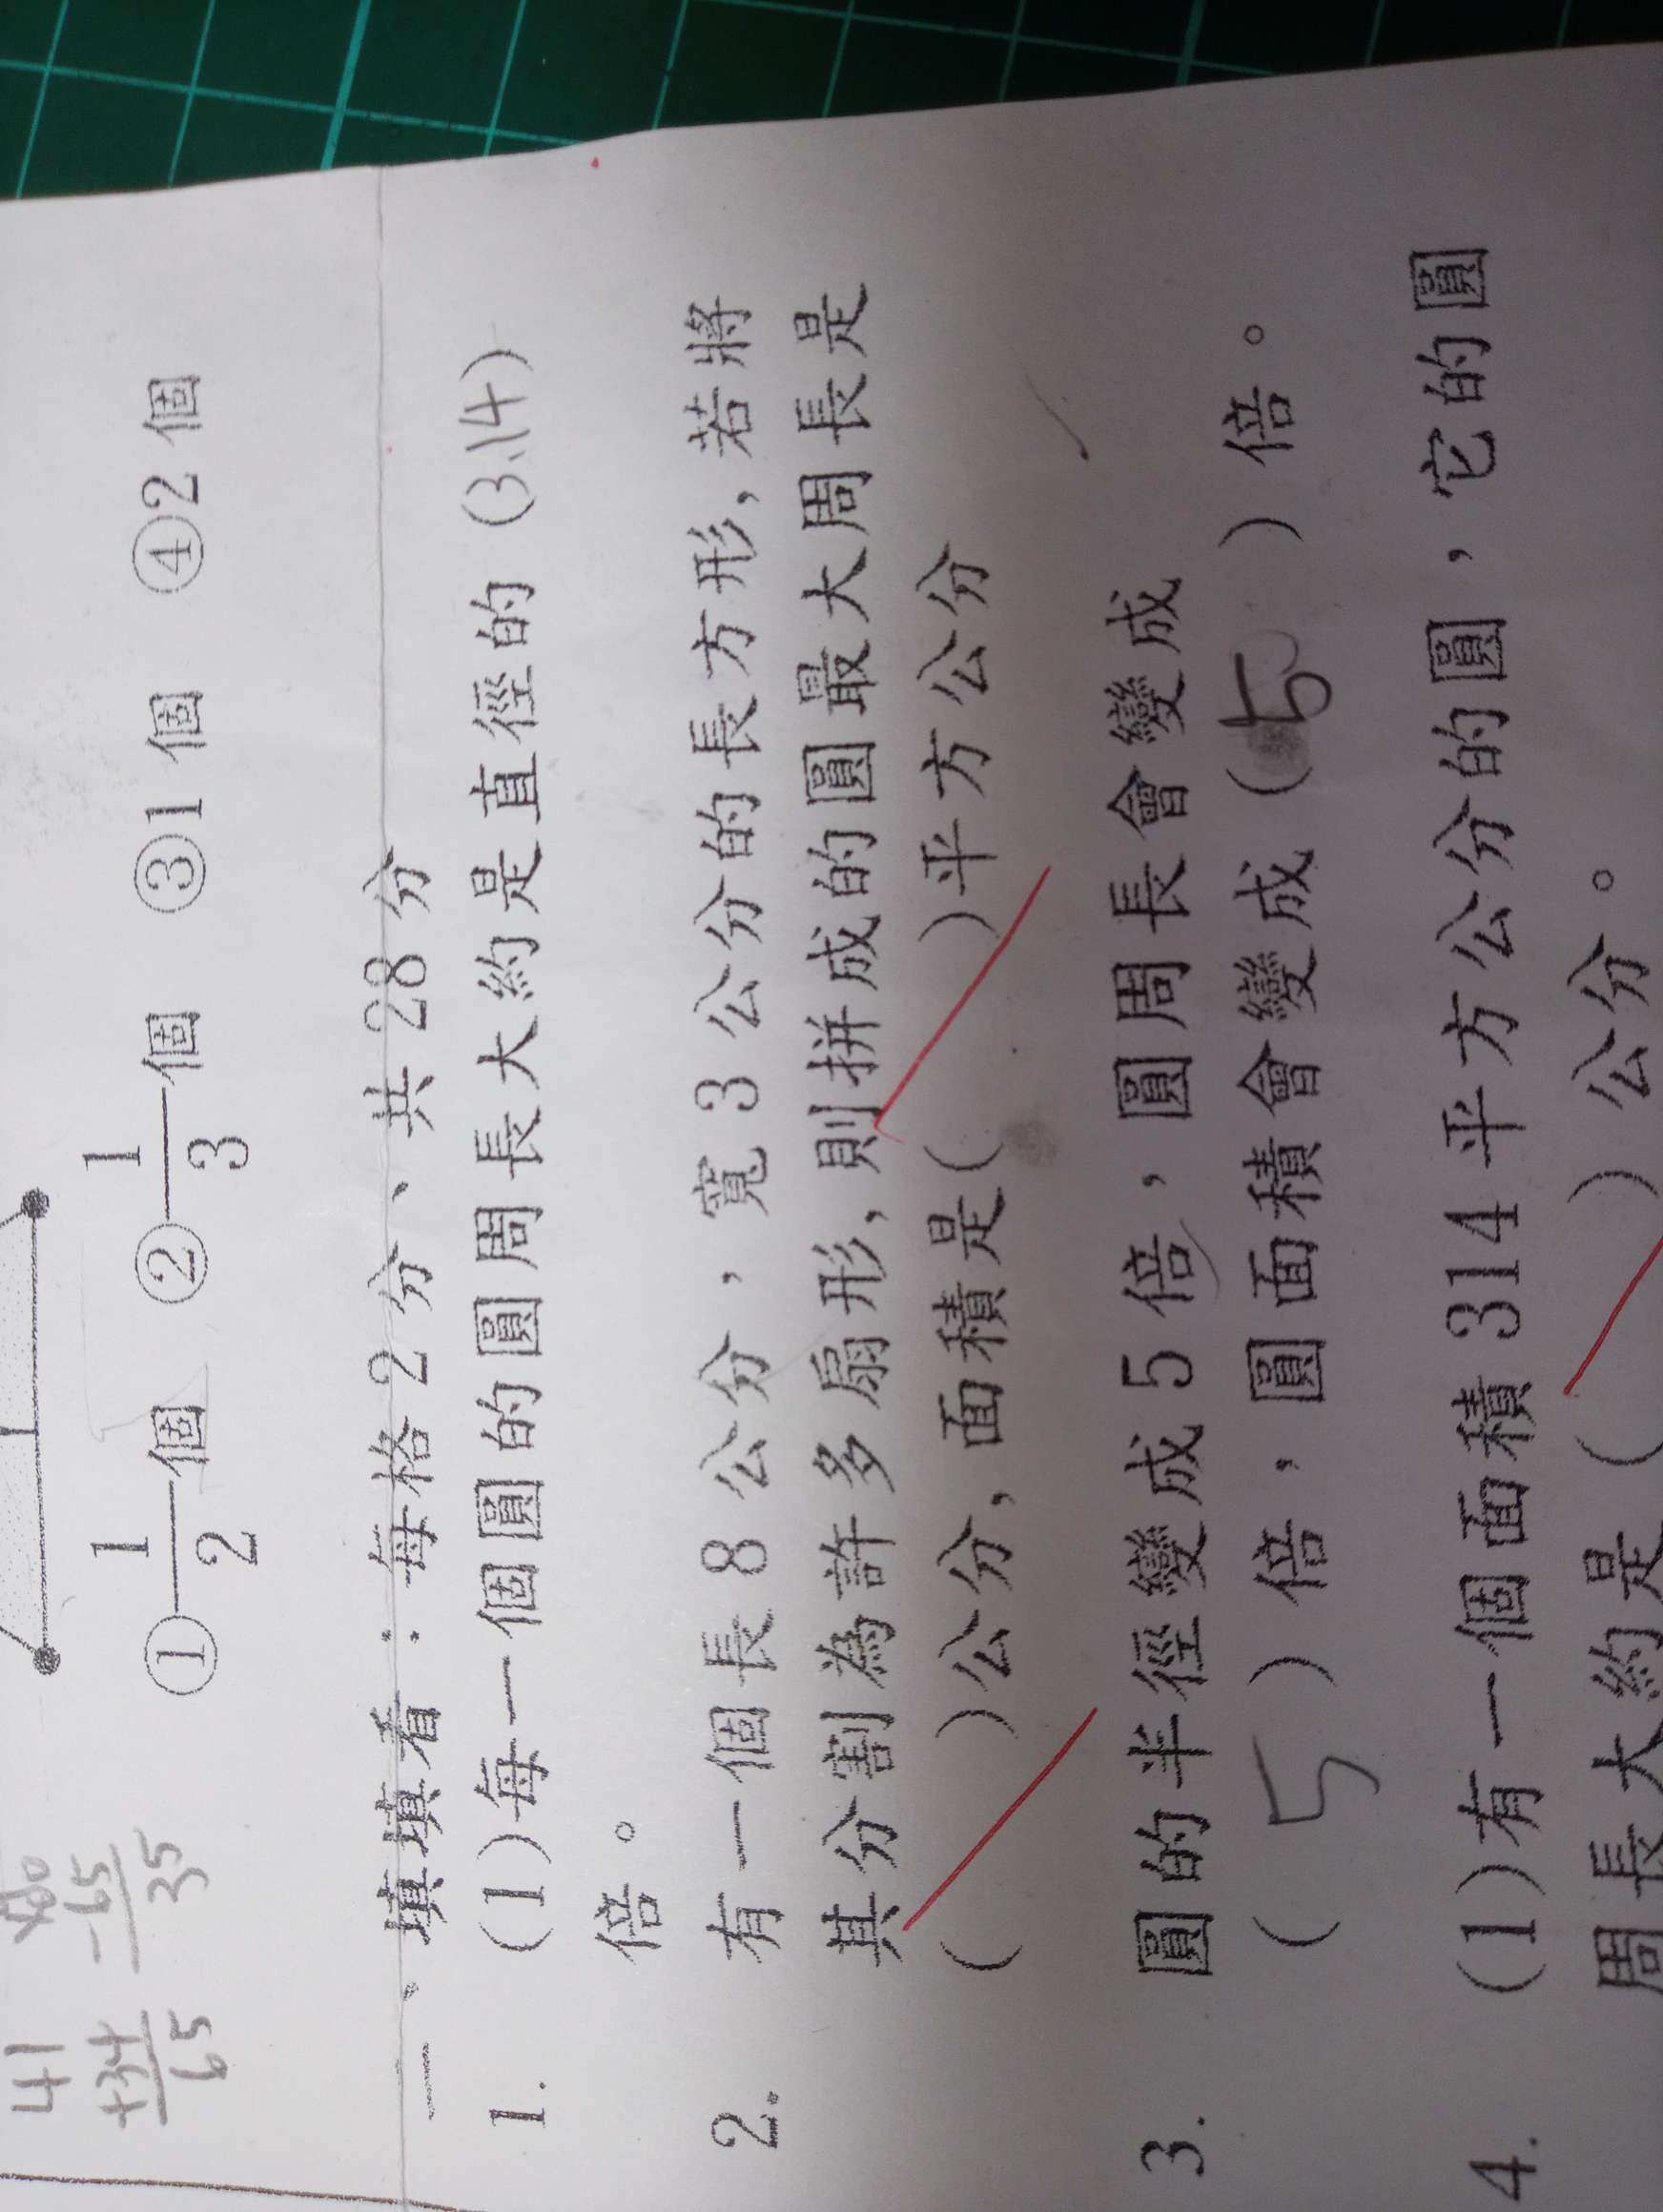 41
+34
65
100
-65
35
①1/2個 ②1/3個 ③1個 ④2個
一、填填看：每格2分、共28分
1. (1)每一個圓的圓周長大約是直徑的(3.14)
倍。
2. 有一個長8公分，寬3公分的長方形,若將
其分割為許多扇形,則拼成的圓最大周長是
( )公分,面積是( )平方公分
3. 圓的半徑變成5倍，圓周長會變成
( 5 )倍，圓面積會變成(5 )倍。
4. (1)有一個面積314平方公分的圓，它的圓
周長大約是( )公分。